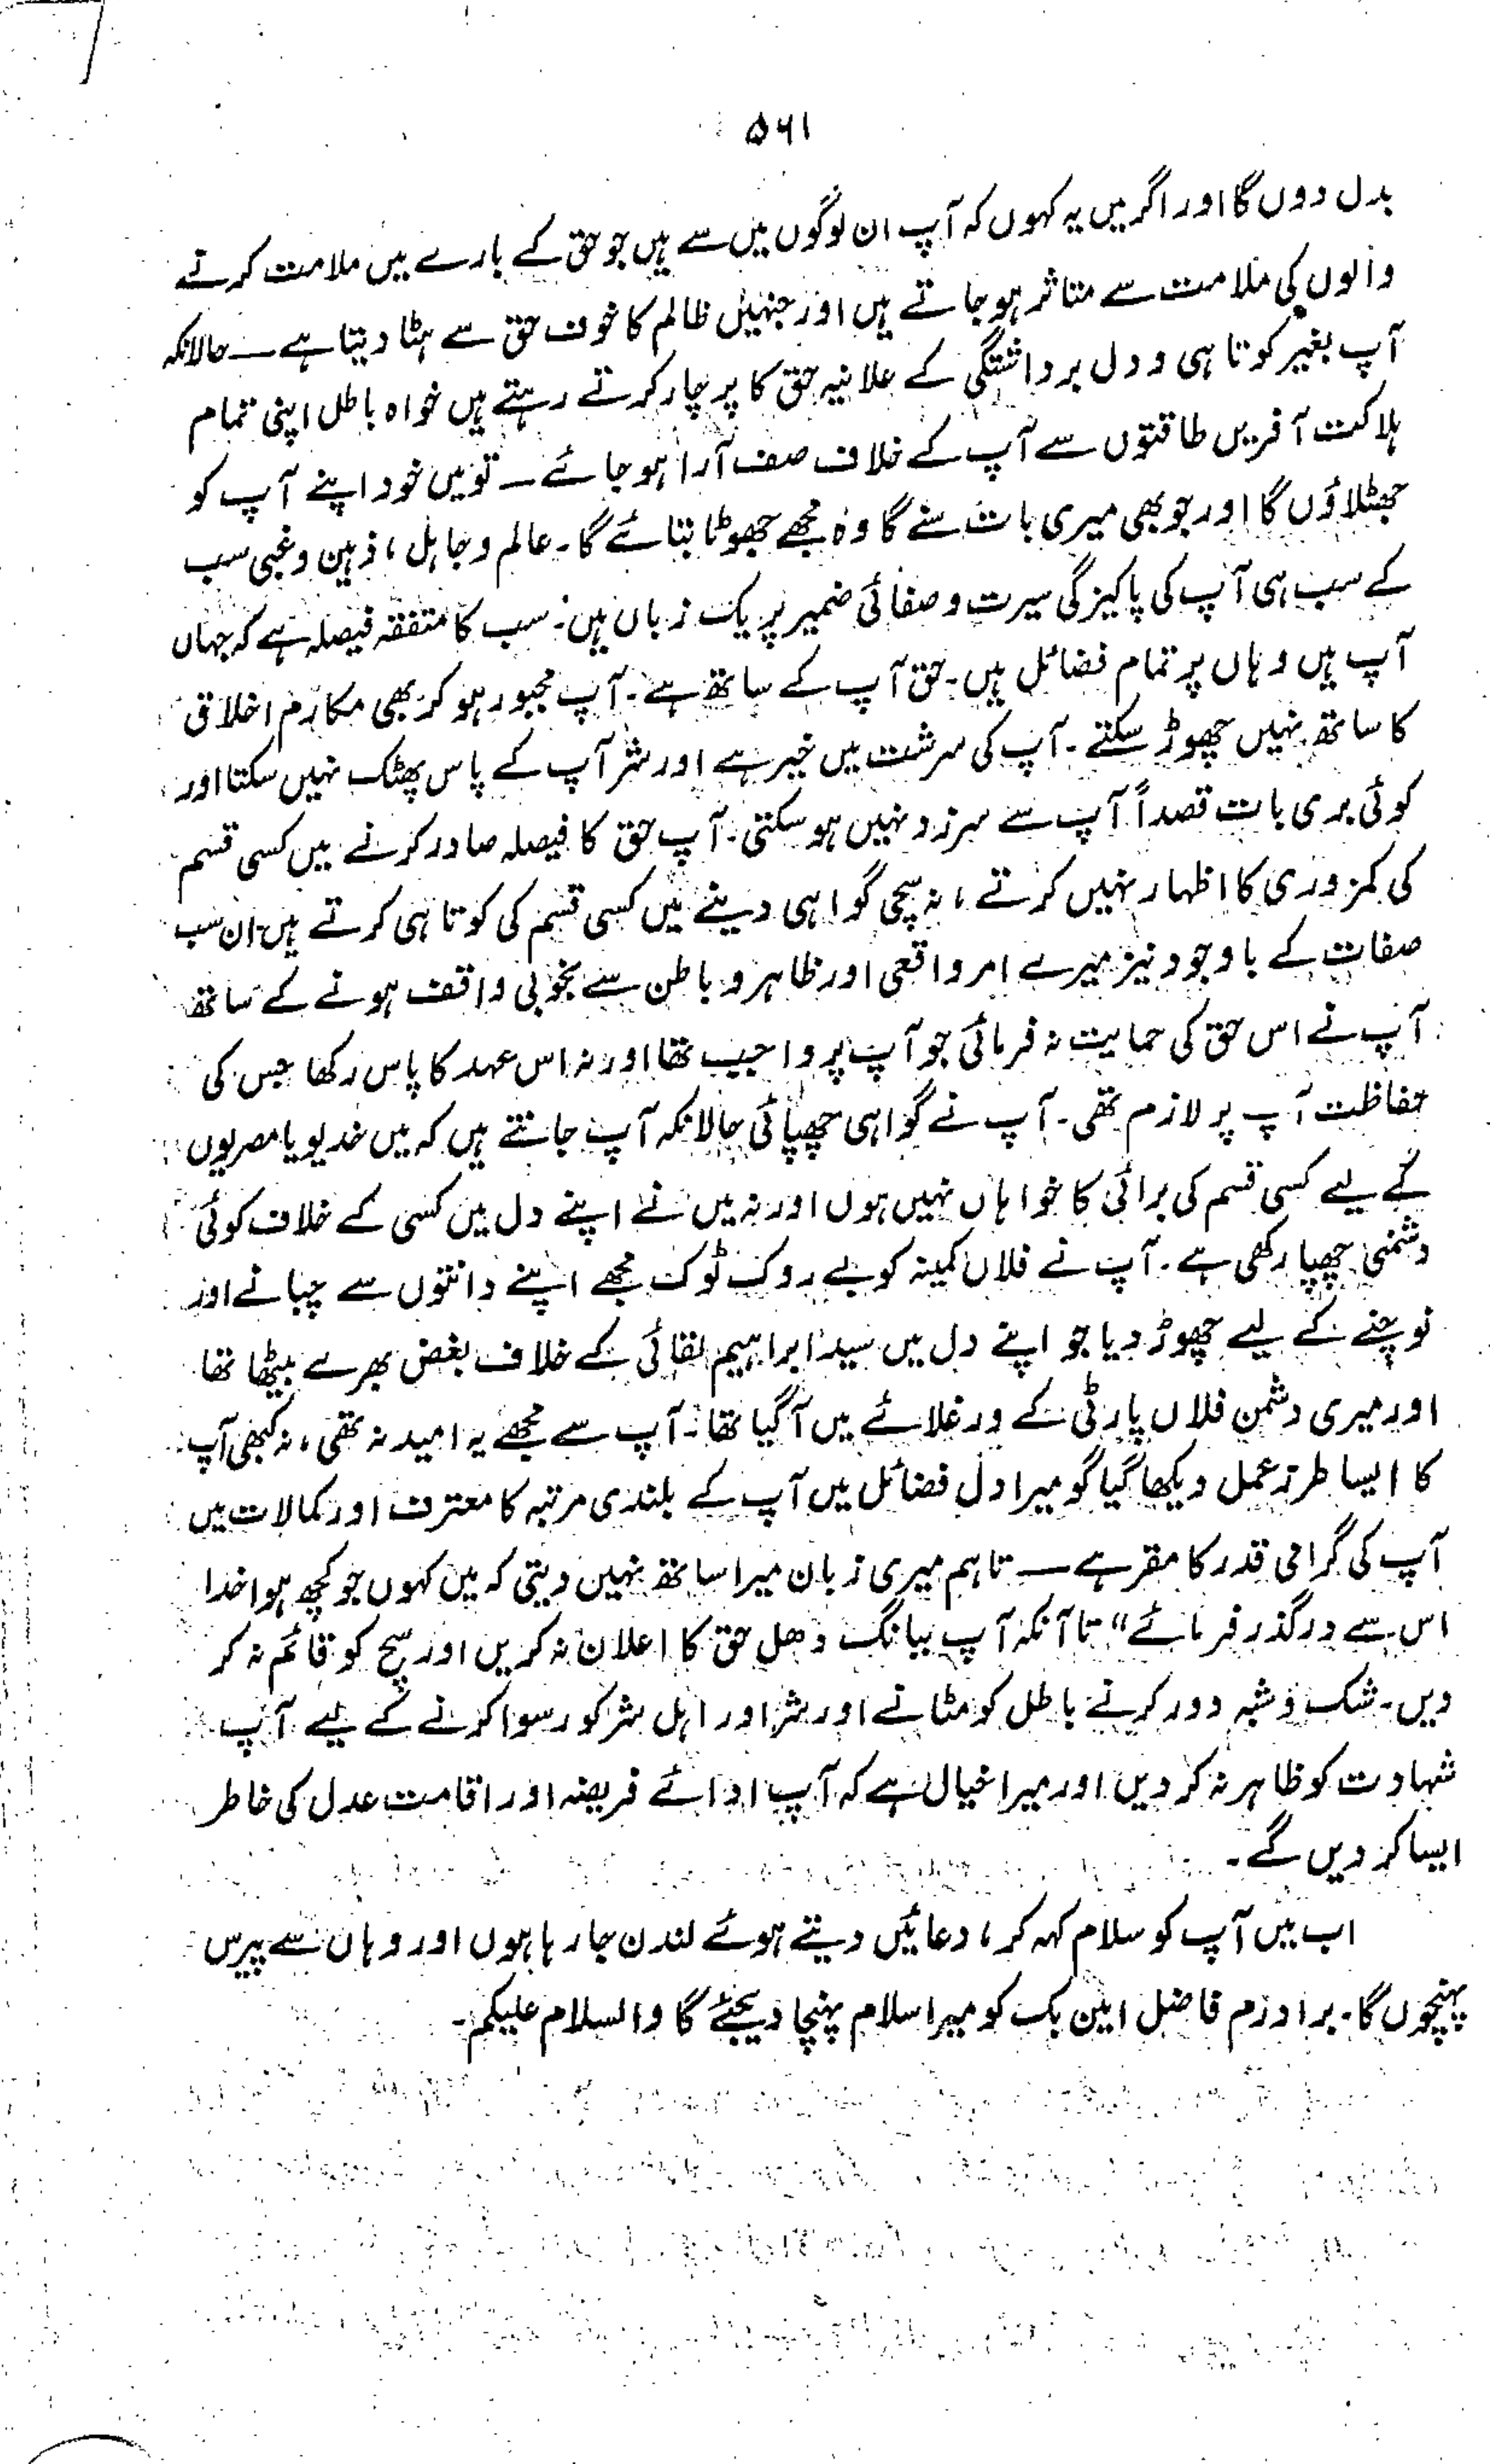 ۵۶۱
بدل دوں گا اور اگر میں یہ کہوں کہ آپ ان لوگوں میں سے ہیں جو حق کے بارے میں ملامت کرتے
والوں کی ملامت سے متاثر ہو جاتے ہیں اور جنہیں ظالم کا خوف حق سے ہٹا دیتا ہے ـــ حالانکہ
آپ بغیر کوتاہی و دل برداشتگی کے علانیہ حق کا پرچار کرتے رہتے ہیں خواہ باطل اپنی تمام
ہلاکت آفریں طاقتوں سے آپ کے خلاف صف آرا ہو جائے ـ تو میں خود اپنے آپ کو
جھٹلاؤں گا اور جو بھی میری بات سنے گا وہ مجھے جھوٹا بتائے گا۔ عالم و جاہل، ذہین و غبی سب
کے سب ہی آپ کی پاکیزگی سیرت و صفائی ضمیر پر یک زبان ہیں۔ سب کا متفقہ فیصلہ ہے کہ جہاں
آپ ہیں وہاں پر تمام فضائل ہیں۔ حق آپ کے ساتھ ہے۔ آپ مجبور ہو کر بھی مکارم اخلاق
کا ساتھ نہیں چھوڑ سکتے۔ آپ کی سرشت میں خیر ہے اور شر آپ کے پاس پھٹک نہیں سکتا اور
کوئی بری بات قصداً آپ سے سرزد نہیں ہو سکتی۔ آپ حق کا فیصلہ صادر کرنے میں کسی قسم
کی کمزوری کا اظہار نہیں کرتے، نہ سچی گواہی دینے میں کسی قسم کی کوتاہی کرتے ہیں۔ ان سب
صفات کے باوجود نیز میرے امر واقعی اور ظاہر و باطن سے بخوبی واقف ہونے کے ساتھ
آپ نے اس حق کی حمایت نہ فرمائی جو آپ پر واجب تھا اور نہ اس عہد کا پاس رکھا جس کی
حفاظت آپ پر لازم تھی۔ آپ نے گواہی چھپائی حالانکہ آپ جانتے ہیں کہ میں خدیو یا مصریوں
کے لیے کسی قسم کی برائی کا خواہاں نہیں ہوں اور نہ میں نے اپنے دل میں کسی کے خلاف کوئی
دشمنی چھپا رکھی ہے۔ آپ نے فلاں کمینہ کو بے روک ٹوک مجھے اپنے دانتوں سے چبانے اور
نوچنے کے لیے چھوڑ دیا جو اپنے دل میں سید ابراہیم لقائی کے خلاف بغض بھرے بیٹھا تھا
اور میری دشمن فلاں پارٹی کے ورغلائے میں آگیا تھا۔ آپ سے مجھے یہ امید نہ تھی، نہ کبھی آپ
کا ایسا طرز عمل دیکھا گیا گو میرا دل فضائل میں آپ کے بلندی مرتبہ کا معترف اور کمالات میں
آپ کی گرامی قدر کا مقر ہے ـــ تاہم میری زبان میرا ساتھ نہیں دیتی کہ میں کہوں جو کچھ ہوا خدا
اس سے درگذر فرمائے" تا آنکہ آپ ببانگ دھل حق کا اعلان نہ کریں اور سچ کو قائم نہ کر
دیں۔ شک و شبہ دور کرنے باطل کو مٹانے اور شر اور اہل شر کو رسوا کرنے کے لیے آپ
شہادت کو ظاہر نہ کر دیں اور میرا خیال ہے کہ آپ ادائے فریضہ اور اقامت عدل کی خاطر
ایسا کر دیں گے۔
اب میں آپ کو سلام کہہ کر، دعائیں دیتے ہوئے لندن جا رہا ہوں اور وہاں سے پیرس
پہنچوں گا۔ برادرم فاضل امین بک کو میرا سلام پہنچا دیجئے گا والسلام علیکم۔